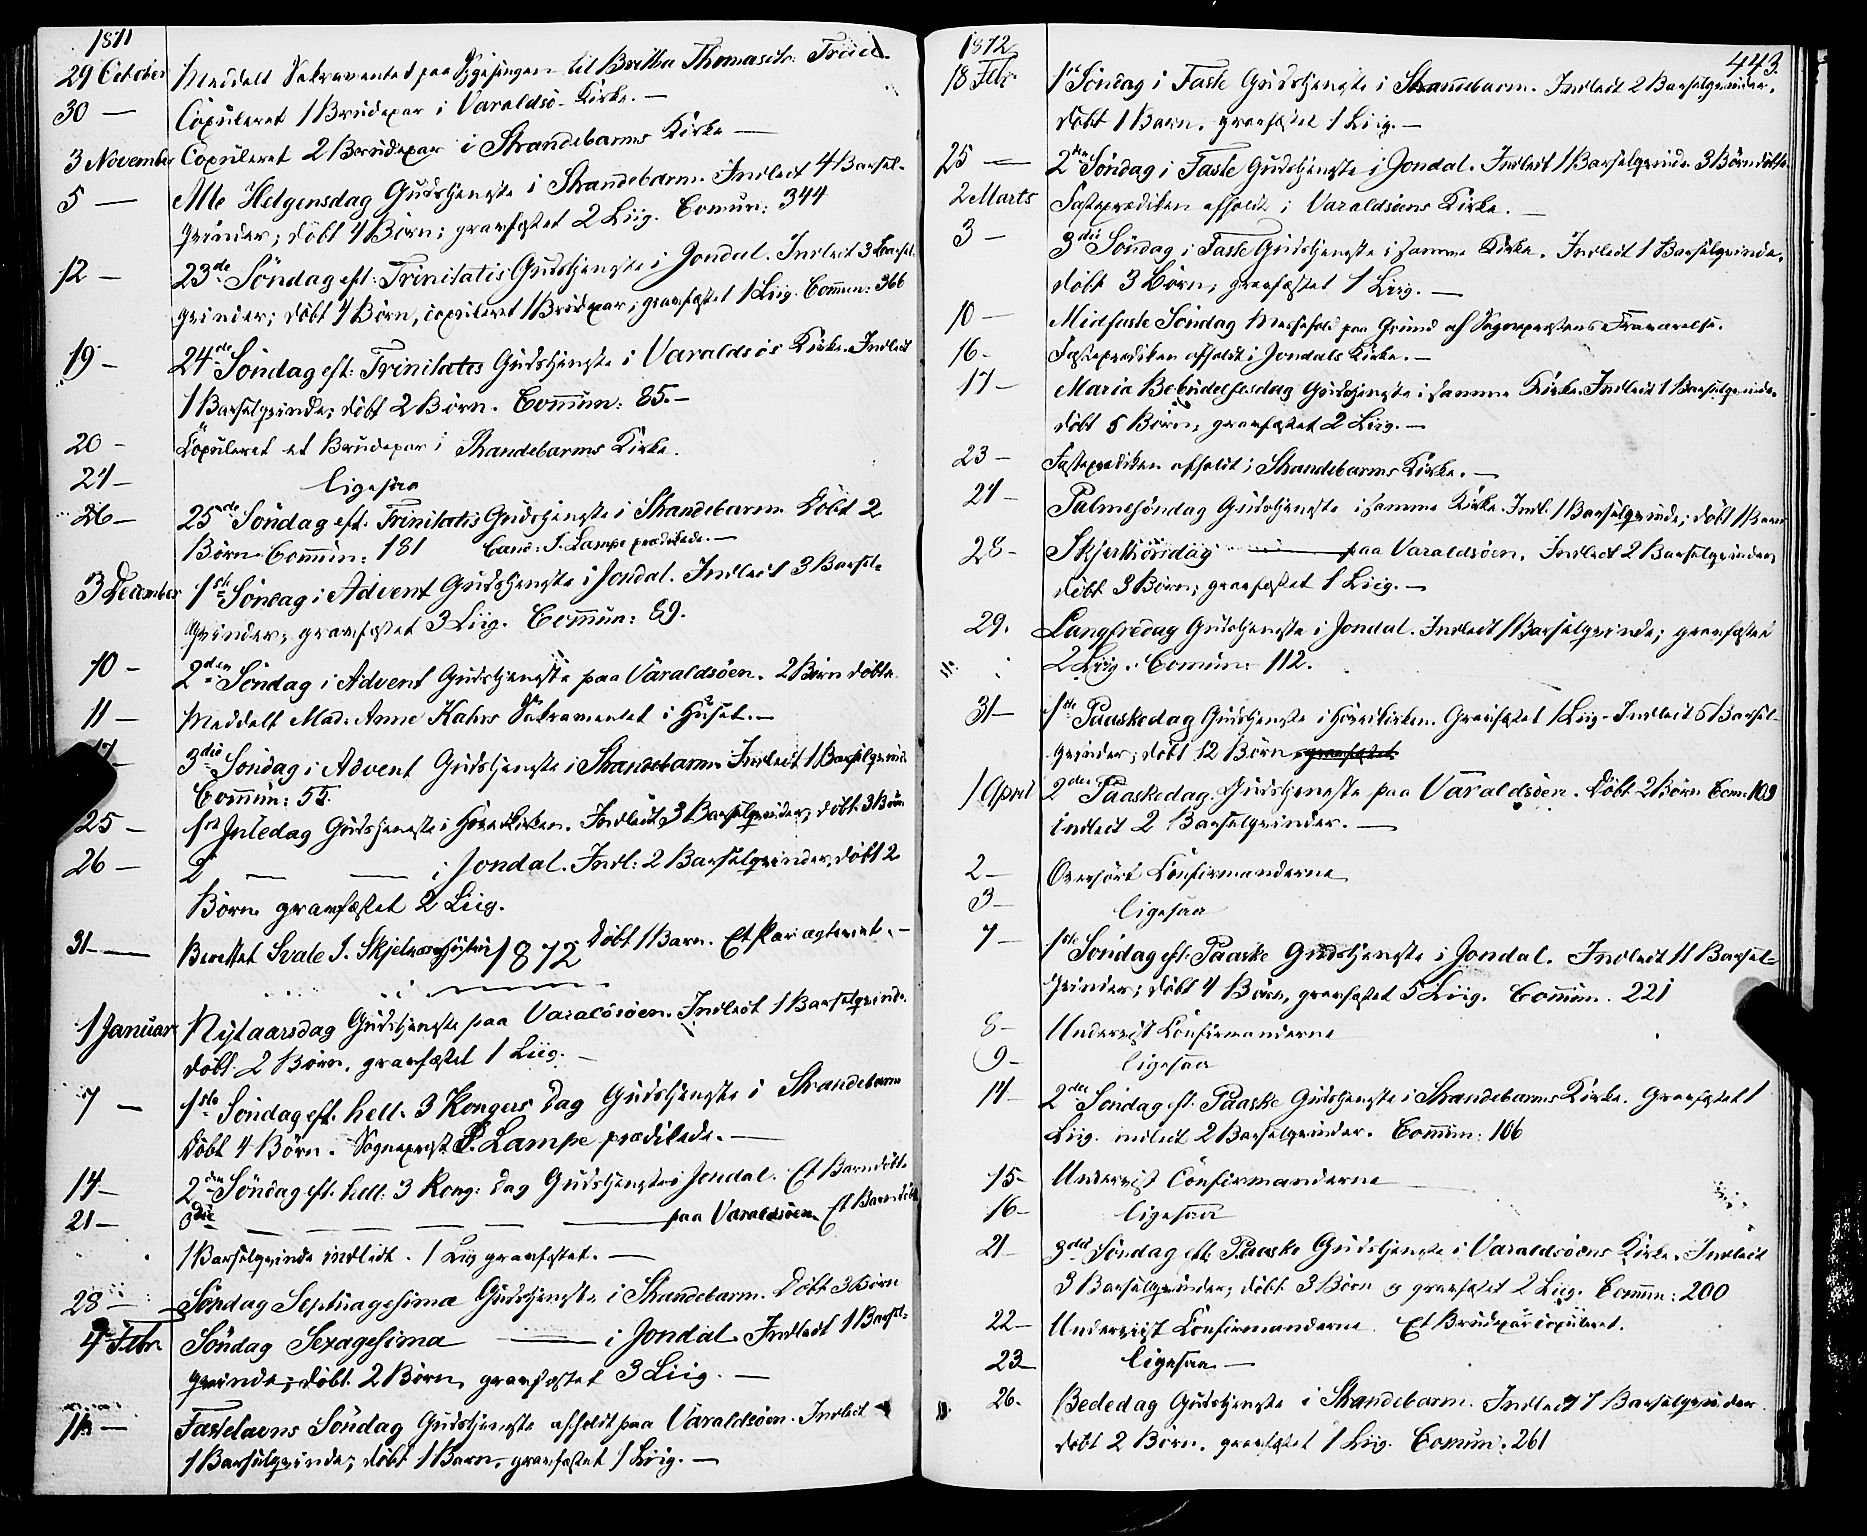 1871
29 October Meddelt Sakramentet paa Sygesengen til Bertha Thomasdtr.
30 — Copuleret 1 Brudepar i Varaldsø Kirke. —
3 November Copuleret 2 Brudepar i Strandebarms Kirke —
5 — Alle Helgensdag Gudstjeneste i Strandebarm. Indledt 4 Barsel-
qvinder; døbt 4 Børn; gravfæstet 2 Liig. Comun: 344
12 — 23de Søndag eft: Trinitatis Gudstjeneste i Jondal. Indledt 3 Barsel-
qvinder; døbt 4 Børn, copuleret 1 Brudepar; gravfæstet 1 Liig. Commun: 366
19 — 24de Søndag eft: Trinitatis Gudstjeneste i Varaldsøs Kirke. Indledt
1 Barselqvinde; døbt 2 Børn. Commun: 85. —
20 — Copuleret et Brudepar i Strandebarms Kirke.
24 — ligesaa
26 — 25de Søndag eft. Trinitatis Gudstjeneste i Strandebarm. Døbt 2
Børn. Commun: 181 Cand: J. Lampe prædikede. —
3 December 1ste Søndag i Advent Gudstjeneste i Jondal. Indledt 3 Barsel-
qvinder; gravfæstet 3 Liig. Commun: 89.
10 — 2den Søndag i Advent Gudstjeneste paa Varaldsøen. 2 Børn døbte.
11 — Meddelt Mad: Anne Kahrs Sakramentet i Huset. —
17 — 3die Søndag i Advent Gudstjeneste i Strandebarm. Indledt 1 Barselqvinde
Commun: 55.
25 — 1ste Juledag Gudstjeneste i Hovedkirken. Indledt 3 Barselqvinder, døbt 3 Børn
26 — 2 — — i Jondal. Indl: 2 Barselqvinder, døbt 2
Børn gravfæstet 2 Liig.
31 — Berettet Døbt 1 Barn. Et Par
1872
1 Januar Nytaarsdag Gudstjeneste paa Varaldsøen. Indledt 1 Barselqvinde.
døbt 2 Børn, gravfæstet 1 Liig. —
7 — 1ste Søndag eft. hell. 3 Kongers Dag Gudstjeneste i Strandebarm
Døbt 4 Børn. Sognepræst P. Lampe prædikede. —
14 — 2den Søndag eft. hell: 3 Kong: Dag Gudstjeneste i Jondal. Et Barn døbt.
21 — 3die — — — — paa Varaldsøen Et Barn døbt
1 Barselqvinde indledt. 1 Liig gravfæstet. —
28 — Søndag Septuagesima Gudstjeneste i Strandebarm. Døbt 3 Børn
4 Febr. Søndag Sexagesima — i Jondal. Indledt 1 Barsel-
qvinde; døbt 2 Børn, gravfæstet 3 Liig. —
11 — Fastelavns Søndag Gudstjeneste afholdt paa Varaldsøen. Indledt
1 Barselqvinde; døbt 1 Barn, gravfæstet 1 Liig. —
1872
443.
18 Febr. 1ste Søndag i Faste Gudstjeneste i Strandebarm. Indledt 2 Barselqvinder.
døbt 1 Barn, gravfæstet 1 Liig. —
25 — 2den Søndag i Faste Gudstjeneste i Jondal. Indledt 1 Barselqvinde. 3 Børn døbte
2 Marts Fasteprædiken afholdt i Varaldsøens Kirke. —
3 — 3die Søndag i Faste Gudstjeneste i samme Kirke. Indledt 1 Barselqvinde.
døbt 3 Børn, gravfæstet 1 Liig. —
10 — Midfaste Søndag Messefald paa Grund af Sognepræstens Fraværelse.
16 — Fasteprædiken afholdt i Jondals Kirke. —
17 — Maria Bebudelsesdag Gudstjeneste i samme Kirke. Indledt 1 Barselqvinde.
døbt 5 Børn, gravfæstet 2 Liig. —
23 — Fasteprædiken afholdt i Strandebarms Kirke. —
24 — Palmesøndag Gudstjeneste i samme Kirke. Indl. 1 Barselqvinde; døbt 1 Barn
28 — Skjærthorsdag — paa Varaldsøen. Indledt 2 Barselqvinder,
døbt 3 Børn; gravfæstet 1 Liig. —
29. Langfredag Gudstjeneste i Jondal. Indledt 1 Barselqvinde; gravfæstet
2 Liig. Comun: 112.
31 — 1ste Paaskedag Gudstjeneste i Hovedkirken. Gravfæstet 1 Liig. Indledt 6 Barsel-
qvinder; døbt 12 Børn gravfæstet
1 April 2den Paaskedag. Gudstjeneste paa Varaldsøen. Døbt 2 Børn Com: 109
indledt 2 Barselqvinder. —
2 — Overhørt Confirmanderne
3 — ligesaa
7 — 1ste Søndag eft. Paaske Gudstjeneste i Jondal. Indledt 11 Barsel-
qvinder; døbt 4 Børn, gravfæstet 5 Liig. Commun. 221
8 — Underviist Confirmanderne
9 — ligesaa
14 — 2den Søndag eft. Paaske Gudstjeneste i Strandebarms Kirke. Gravfæstet 1
Liig. indledt 2 Barselqvinder. Commun: 106
15 — Underviist Confirmanderne
16 — ligesaa
21 — 3die Søndag eft. Paaske Gudstjeneste i Varaldsøens Kirke. Indledt
3 Barselqvinder; døbt 3 Børn og gravfæstet 2 Liig. Commun: 200
22 — Underviist Confirmanderne. Et Brudepar copuleret.
23 — ligesaa —
26. Bededag Gudstjeneste i Strandebarm. Indledt 7 Barselqvinder
døbt 2 Børn. gravfæstet 1 Liig. Comun: 261